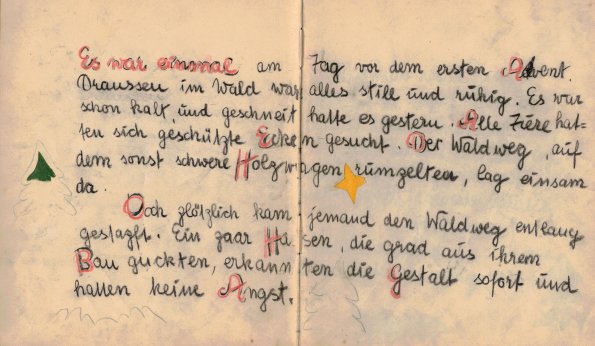 Es war einmal am Tag vor dem ersten Advent.
Draussen im Wald war alles still und ruhig. Es war
schon kalt, und geschneit hatte es gestern. Alle Tiere hat=
ten sich geschützte Ecken gesucht. Der Waldweg, auf
dem sonst schwere Holzwagen rumpelten, lag einsam
da.
Doch plötzlich kam jemand den Waldweg entlang
gestapft. Ein paar Hasen, die grad aus ihrem
Bau guckten, erkannten die Gestalt sofort und
hatten keine Angst.